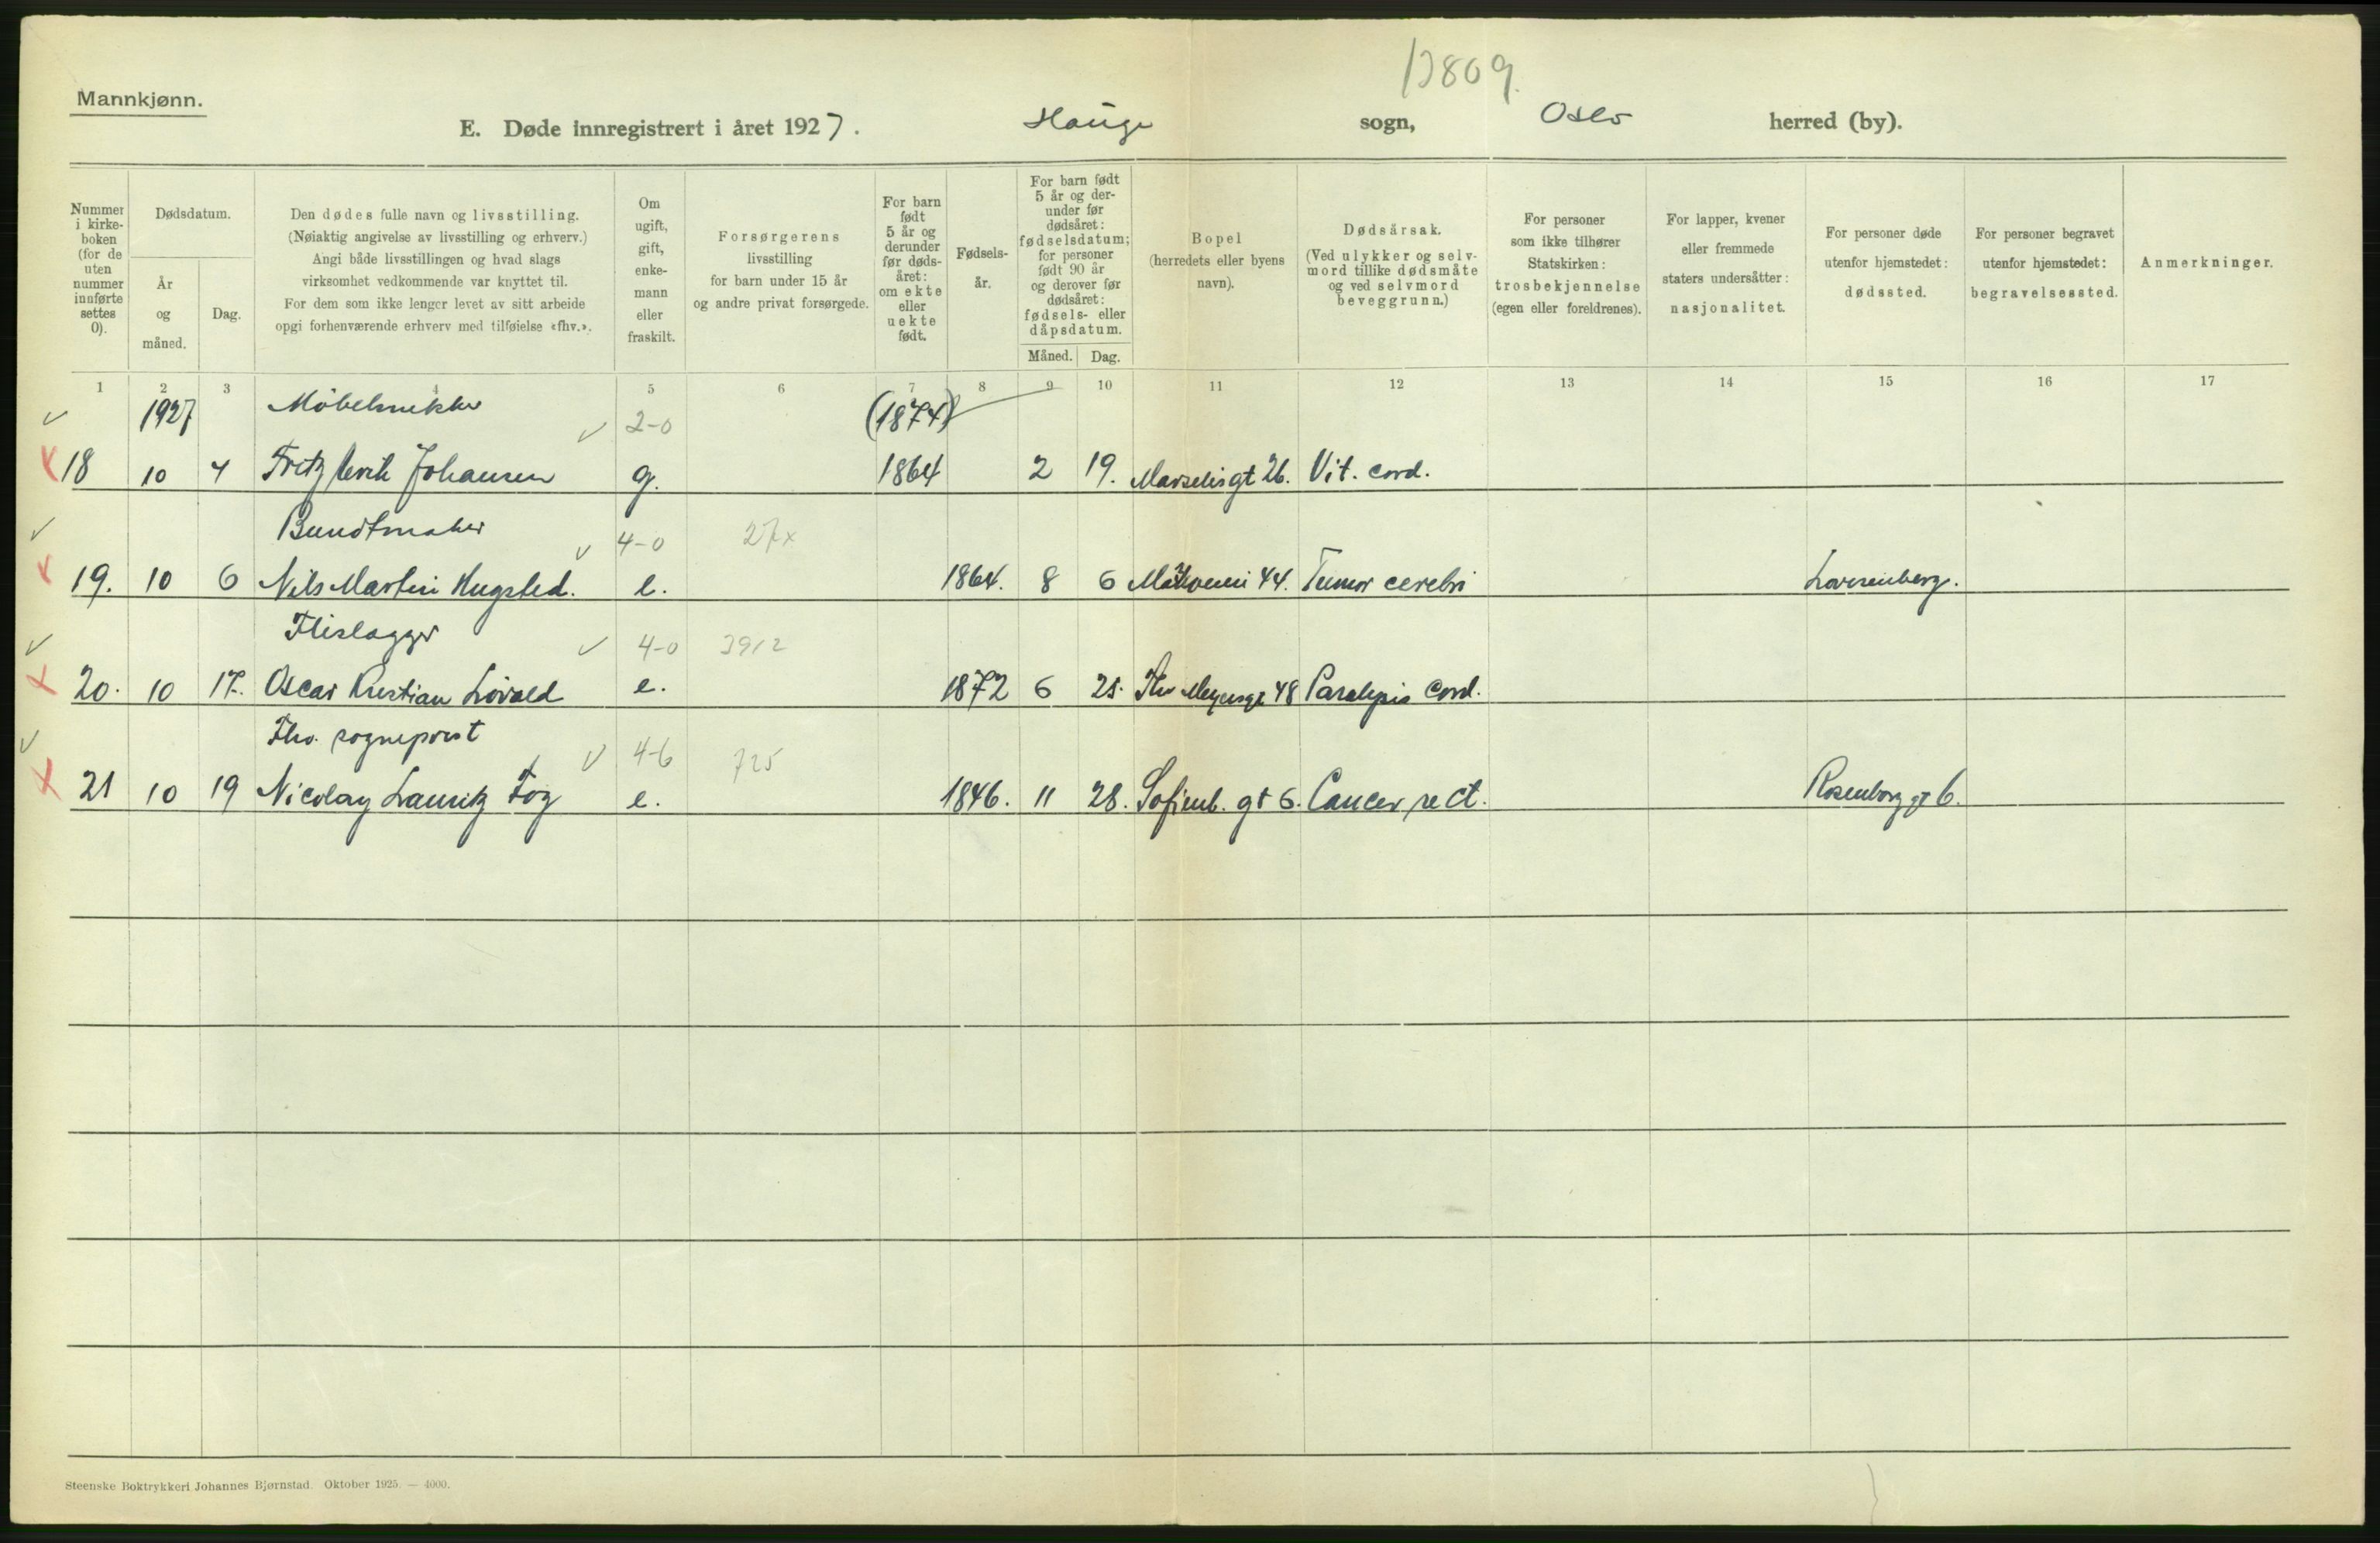 13809.
Mannkjønn.
E. Døde innregistrert i året 1927. Hauge sogn, Oslo herred (by).
Nummer i kirkeboken (for de uten nummer innførte settes 0).
Dødsdatum.
År og måned.
Dag.
Den dødes fulle navn og livsstilling.
(Nøiaktig angivelse av livsstilling og erhverv.)
Angi både livsstillingen og hvad slags
virksomhet vedkommende var knyttet til.
For dem som ikke lenger levet av sitt arbeide
opgi forhenværende erhverv med tilføielse «fhv.».
Om ugift, gift, enkemann eller fraskilt.
Forsørgerens
livsstilling
for barn under 15 år
og andre privat forsørgede.
For barn født 5 år og derunder før dødsåret: om ekte eller uekte født.
Fødselsår.
For barn født 5 år og derunder før dødsåret: fødselsdatum; for personer født 90 år og derover før dødsåret: fødsels- eller dåpsdatum.
Måned. Dag.
Bopel
(herredets eller byens
navn).
Dødsårsak.
(Ved ulykker og selvmord tillike dødsmåte og ved selvmord beveggrunn.)
For personer
som ikke tilhører
Statskirken:
trosbekjennelse
(egen eller foreldrenes).
For lapper, kvener
eller fremmede
staters undersåtter:
nasjonalitet.
For personer døde
utenfor hjemstedet:
dødssted.
For personer begravet
utenfor hjemstedet:
begravelsessted.
Anmerkninger.
1 2 3 4 5 6 7 8 9 10 11 12 13 14 15 16 17
1927 Møbelsnekker 2-0 (1874)
18 10 4 Fritz Johansen g. 1864 2 19. Marselisgt 26. Vit. cord.
Bundtmaker 4-0 27x
19. 10 6 Nils Martin Hugsted. e. 1864. 8 6 44. Tumor cerebri Lovisenberg.
Fliselagger 4-0 3912
20. 10 17. Oscar Kristian Lövold e. 1872 6 25. Thv Meyersgt 48 Paralysis Cord.
Fhv. sogneprest 4-6 725
21 10 19 Nicolay Lauritz Fog e. 1846. 11 28. Sofienb. gt 6. Cancer rect. Rosenborggt 6.
Steenske Boktrykkeri Johannes Bjørnstad. Oktober 1925. — 4000.